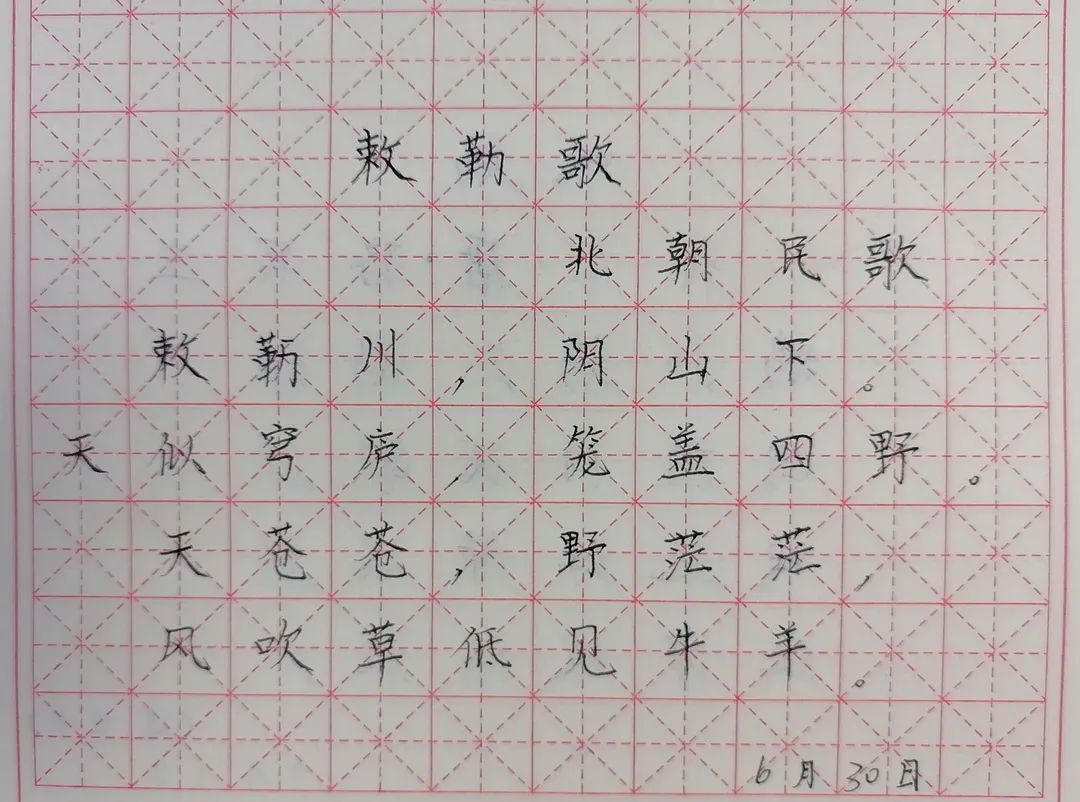 敕勒歌
北朝民歌
敕勒川，阴山下。
天似穹庐，笼盖四野。
天苍苍，野茫茫，
风吹草低见牛羊。
6月30日